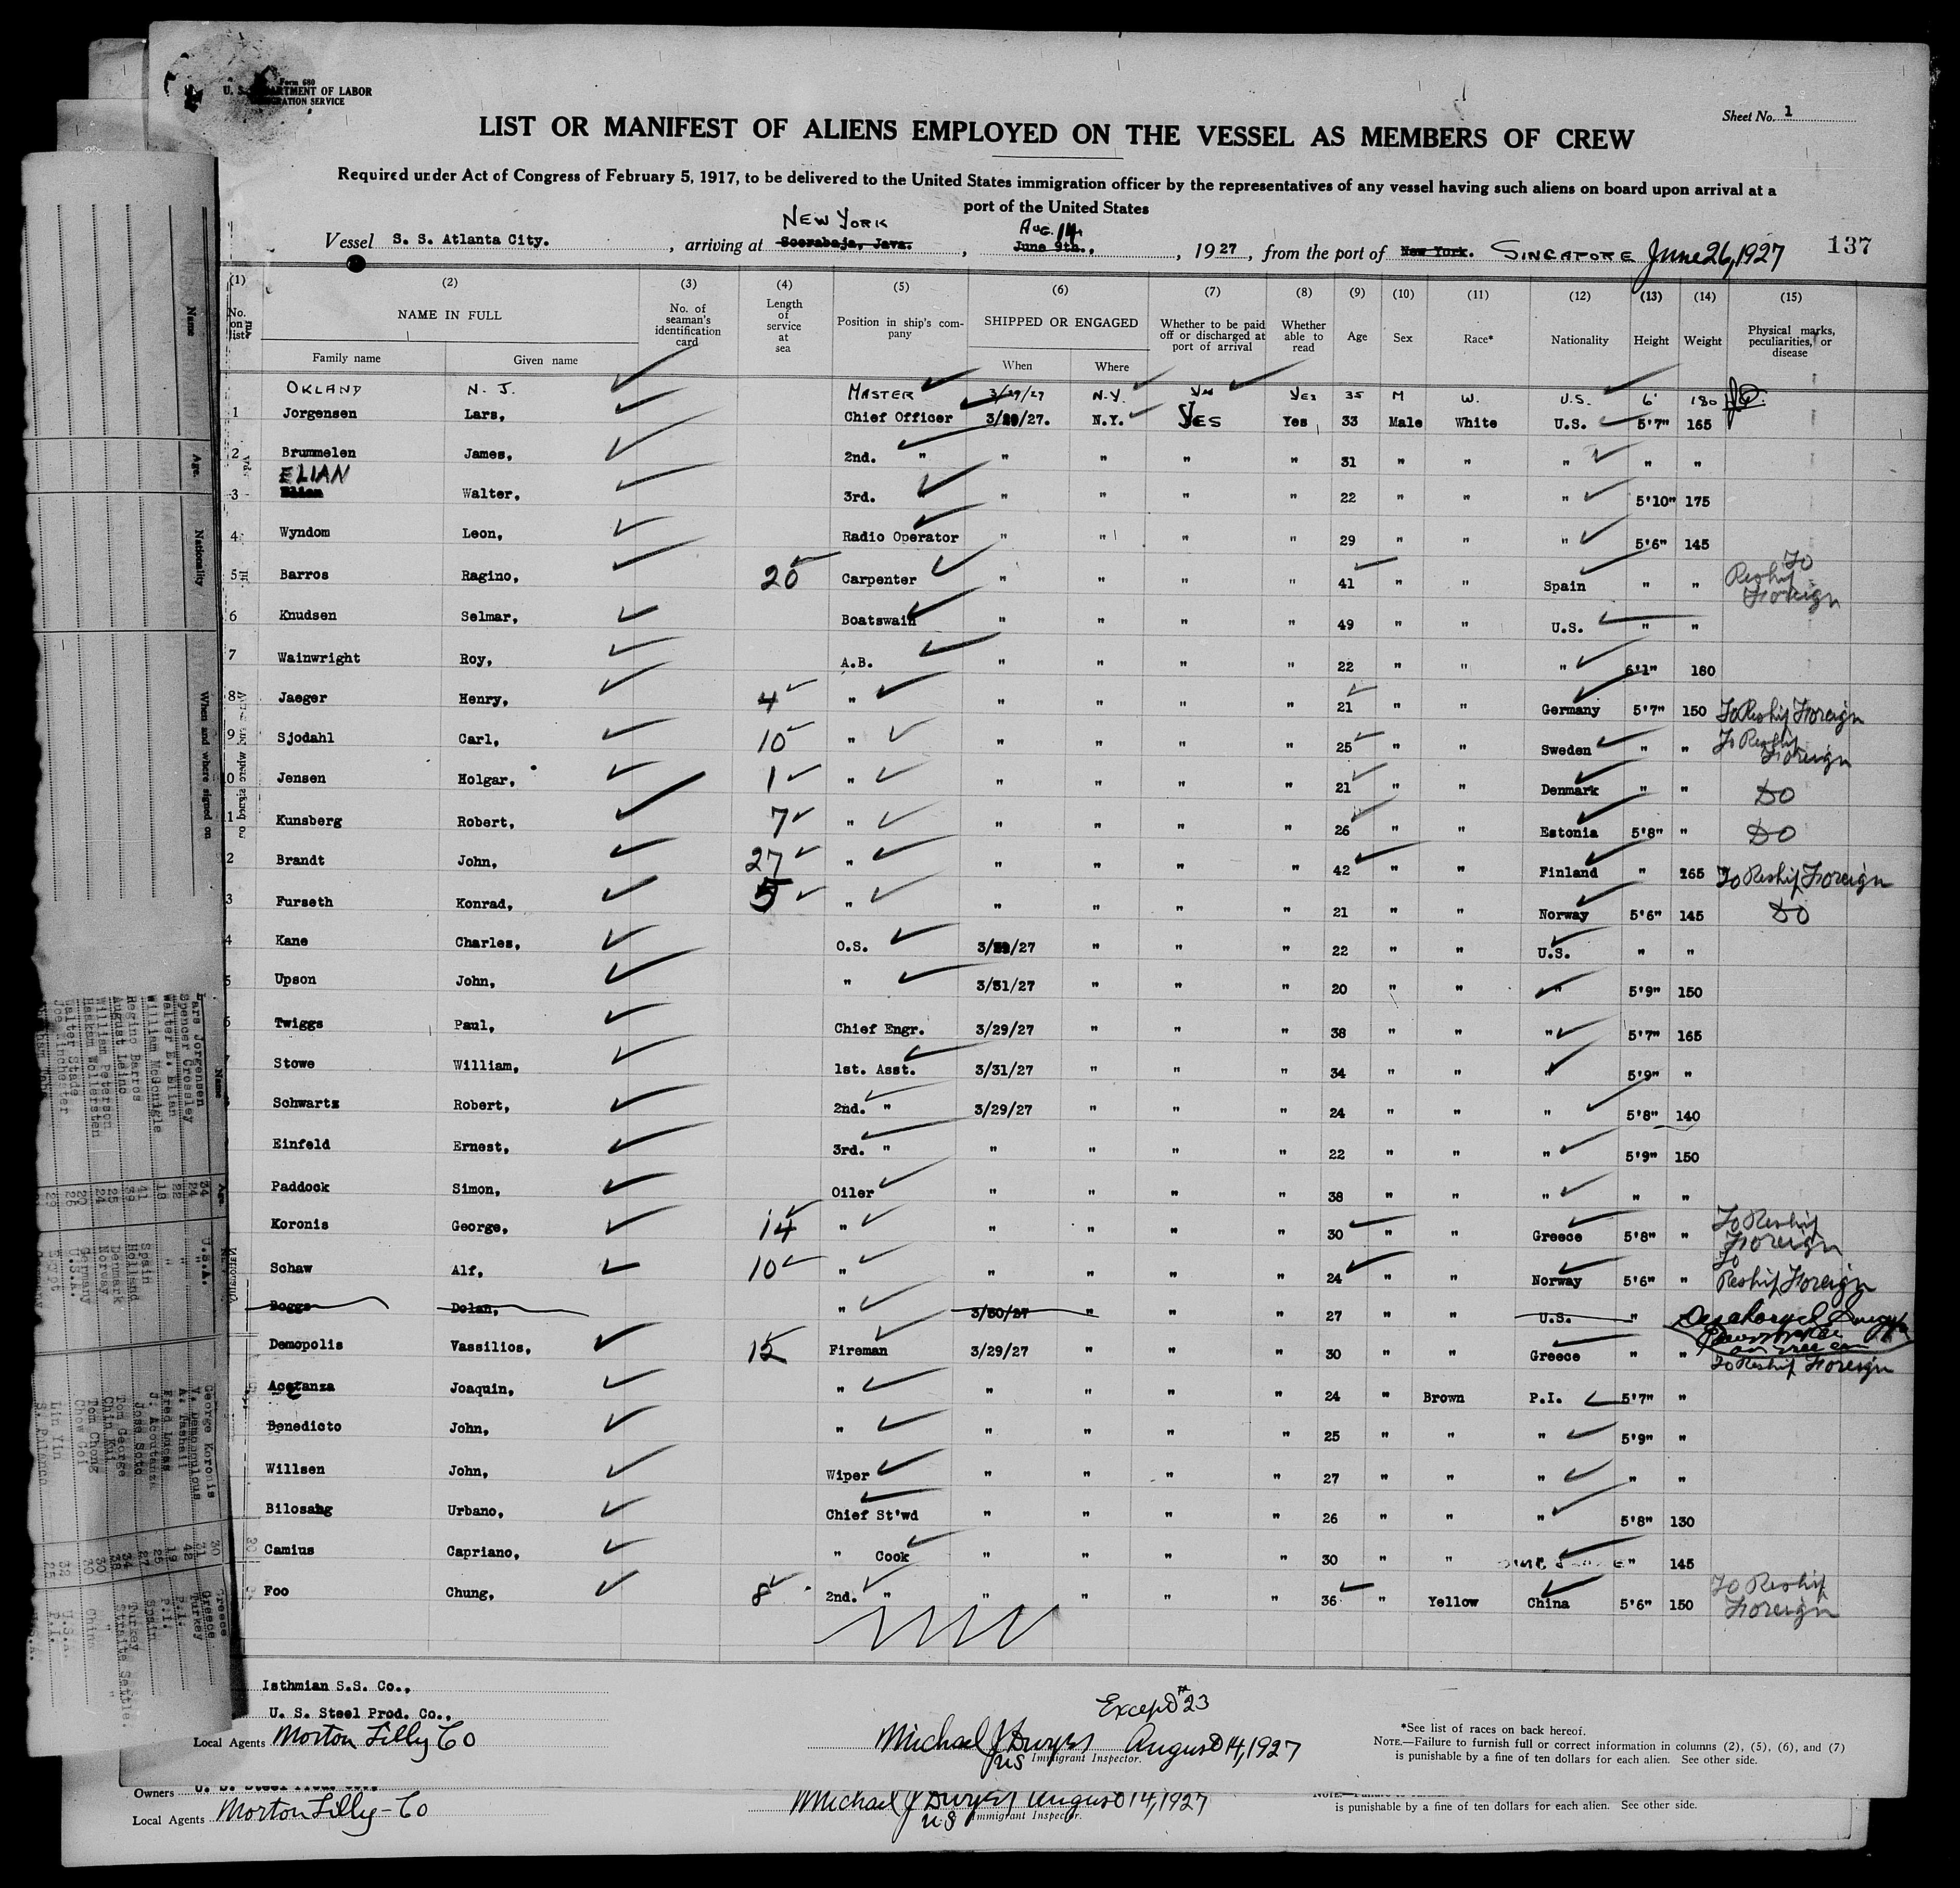 Form 680
U. S. DEPARTMENT OF LABOR
IMMIGRATION SERVICE
Sheet No. 1
LIST OR MANIFEST OF ALIENS EMPLOYED ON THE VESSEL AS MEMBERS OF CREW
Required under Act of Congress of February 5, 1917, to be delivered to the United States immigration officer by the representatives of any vessel having such aliens on board upon arrival at a
port of the United States
NEW YORK AUG. 14
Vessel S. S. Atlanta City. , arriving at Soerabaja, Java. , June 9th. , 1927 , from the port of New York. SINGAPORE June 26, 1927 137
(1) (2) (3) (4) (5) (6) (7) (8) (9) (10) (11) (12) (13) (14) (15)
No. on list NAME IN FULL No. of seaman's identification card Length of service at sea Position in ship's company SHIPPED OR ENGAGED Whether to be paid off or discharged at port of arrival Whether able to read Age Sex Race* Nationality Height Weight Physical marks, peculiarities, or disease
Family name Given name When Where
OKLAND N. J. MASTER 3/29/27 N.Y. Yes Yes 35 M W. U.S. 6' 180
1 Jorgensen Lars, Chief Officer 3/29/27. N.Y. YES Yes 33 Male White U.S. 5'7" 165
2 Brummelen James, 2nd. " " " " " 31 " " " " "
ELIAN
3 Elian Walter, 3rd. " " " " 22 " " " 5'10" 175
4 Wyndom Leon, Radio Operator " " " " 29 " " " 5'6" 145
5 Barros Ragino, 20 Carpenter " " " " 41 " " Spain " " To Reship Foreign
6 Knudsen Selmar, Boatswain " " " " 49 " " U.S. " "
7 Wainwright Roy, A.B. " " " " 22 " " " 6'1" 180
8 Jaeger Henry, 4 " " " " " 21 " " Germany 5'7" 150 To Reship Foreign
9 Sjodahl Carl, 10 " " " " " 25 " " Sweden " " To Reship Foreign
10 Jensen Holgar, 1 " " " " " 21 " " Denmark " " DO
1 Kunsberg Robert, 7 " " " " " 26 " " Estonia 5'8" " DO
2 Brandt John, 27 " " " " " 42 " " Finland " 165 To Reship Foreign
3 Furseth Konrad, 5 " " " " " 21 " " Norway 5'6" 145 DO
4 Kane Charles, O.S. 3/29/27 " " " 22 " " U.S. " "
5 Upson John, " 3/31/27 " " " 20 " " " 5'9" 150
6 Twiggs Paul, Chief Engr. 3/29/27 " " " 38 " " " 5'7" 165
7 Stowe William, 1st. Asst. 3/31/27 " " " 34 " " " 5'9" "
Schwartz Robert, 2nd. " 3/29/27 " " " 24 " " " 5'8" 140
Einfeld Ernest, 3rd. " " " " " 22 " " " 5'9" 150
Paddock Simon, Oiler " " " " 38 " " " " "
Koronis George, 14 " " " " " 30 " " Greece 5'8" " To Reship Foreign
Schaw Alf, 10 " " " " " 24 " " Norway 5'6" " To Reship Foreign
Boggs Dolan, " 3/30/27 " " " 27 " " U.S. "
Demopolis Vassilios, 15 Fireman 3/29/27 " " " 30 " " Greece " " To Reship Foreign
Acetanza Joaquin, " " " " " 24 " Brown P.I. 5'7" "
Benedicto John, " " " " " 25 " " " 5'9" "
Willsen John, Wiper " " " " 27 " " " " "
Bilosang Urbano, Chief St'wd " " " " 26 " " " 5'8" 130
Camius Capriano, " Cook " " " " 30 " " " " 145
Foo Chung, 8 2nd. " " " " " 36 " Yellow China 5'6" 150 To Reship Foreign
Isthmian S.S. Co.,
U. S. Steel Prod. Co.,
Local Agents Morton Lilly Co
Except #23
Michael J Dwyer August 14, 1927
US Immigrant Inspector.
*See list of races on back hereof.
NOTE.—Failure to furnish full or correct information in columns (2), (5), (6), and (7)
is punishable by a fine of ten dollars for each alien. See other side.
Owners U. S. Steel Prod. Co.,
Local Agents Morton Lilly-Co
Michael J Dwyer August 14, 1927
US Immigrant Inspector.
is punishable by a fine of ten dollars for each alien. See other side.
Name
Age
Nationality
When and where signed on
Name
Lars Jorgensen 34 U.S.A.
Spencer Crossley 24 "
Walter E. Elian 22 "
William McGonigle 18 "
Regino Barros 41 Spain
August Leino 39 Holland
William Peterson 25 Denmark
Haakam Wollersten 24 Norway
Walter Stade 20 Germany
Joe Winchester 26 U.S.A.
George Koronis 30 Greece
Tom George
Tom Chong
Chow Goi
Lin Yin